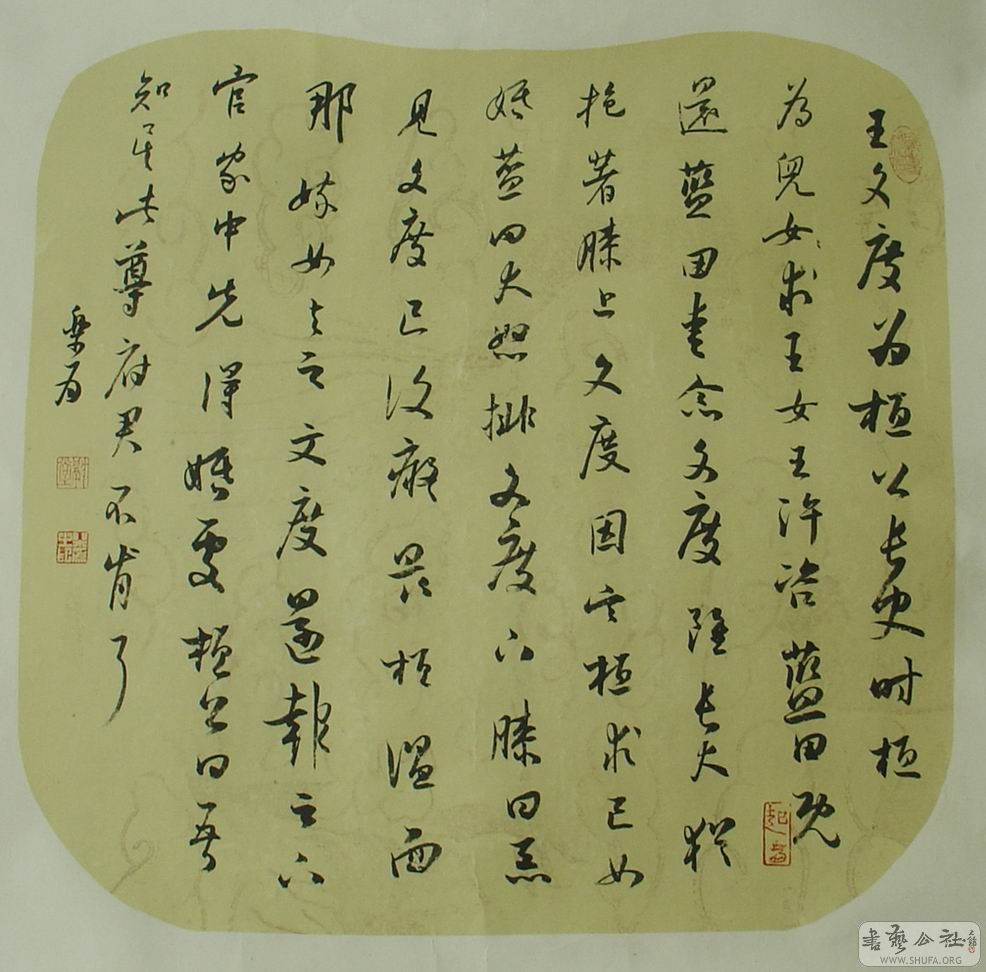 王文度为桓公長史时桓
為兒女求王女王許咨藍田既
還藍田愛念文度雖長大猶
抱著膝上文度因言桓求己女
婚藍田大怒排文度下膝曰惡
見文度已復癡畏桓溫面
那嫁女与之文度還報云下
官家中先得婚處桓公曰吾
知矣此尊府君不肯耳
書藝公社
WWW.SHUFA.ORG